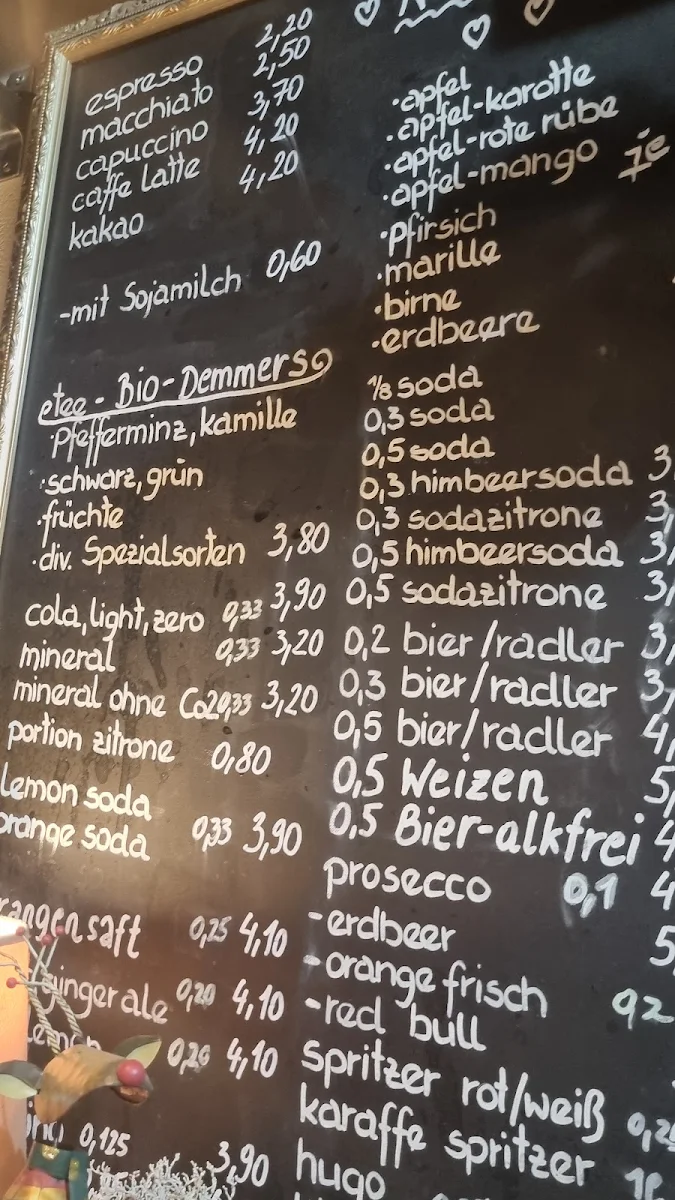 espresso 2,20
macchiato 2,50
capuccino 3,70
caffe latte 4,20
kakao 4,20
-mit Sojamilch 0,60
etee - Bio - Demmers
Pfefferminz, kamille
·schwarz, grün
·früchte
·div. Spezialsorten 3,80
cola, light, zero 0,33 3,90
mineral 0,33 3,20
mineral ohne Co2 0,33 3,20
portion zitrone 0,80
lemon soda
orange soda 0,33 3,90
rangensaft 0,25 4,10
ginger ale 0,20 4,10
lemon 0,20 4,10
0,125
3,90
·apfel
·apfel-karotte
·apfel-rote rübe
·apfel-mango je
·pfirsich
·marille
·birne
·erdbeere
1/8 soda
0,3 soda
0,5 soda
0,3 himbeersoda 3,
0,3 sodazitrone 3,
0,5 himbeersoda 3,
0,5 sodazitrone 3,
0,2 bier/radler 3,
0,3 bier/radler 3,
0,5 bier/radler 4,
0,5 Weizen 5,
0,5 Bier-alkfrei 4
prosecco 0,1 4
-erdbeer 5
-orange frisch
-red bull 0,2
spritzer rot/weiß 0,2
karaffe spritzer 1
hugo